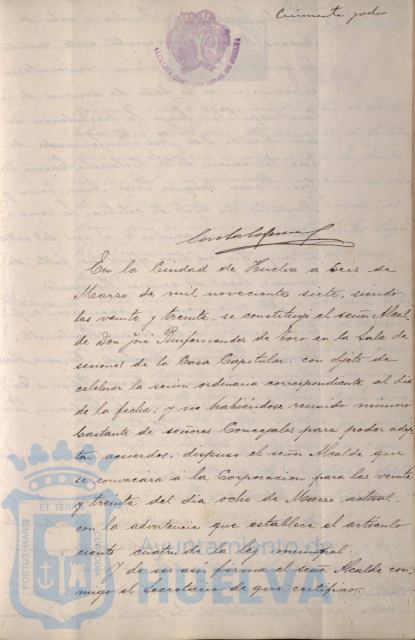 Cincuenta y dos
ALCALDIA CONSTITUCIONAL DE HUELVA
En la Ciudad de Huelva a seis de
Marzo de mil novecientos siete, siendo
las veinte y treinta, se constituyó el señor Alcal
de Don José de Toro en la Sala de
sesiones de la Casa Capitular, con objeto de
celebrar la sesion ordinaria correspondiente al dia
de la fecha, y no habiéndose reunido número
bastante de señores Concejales para poder adop
tar acuerdos, dispuso el señor Alcalde que
se convocara á la Corporacion para las veinte
y treinta del dia ocho de Marzo actual
con la advertencia que establece el artículo
ciento cuatro de la ley municipal.
Y de ser asi, firma el señor Alcalde con
migo el Secretario de que certifico.
PORTUS MARIS ET TERRAE CUSTODIA
Ayuntamiento de
HUELVA